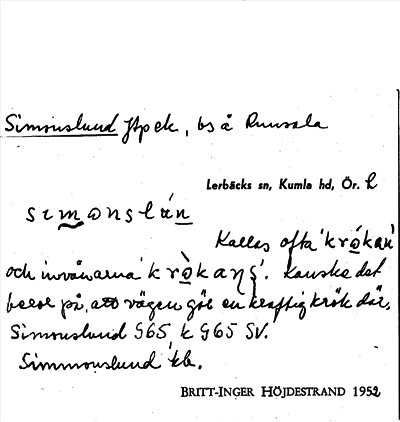 Simonslund Jfpek, bs å Runsala
Lerbäcks sn, Kumla hd, Ör. l
sımonslán
Kallas ofta 'krò̠kan'
och invånarna 'krò̠kaŋs'. Kanske det
beror på, att vägen gör en kraftig krök där.
Simonslund G65, k G65 SV.
Simmonslund kb.
BRITT-INGER HÖJDESTRAND 1952